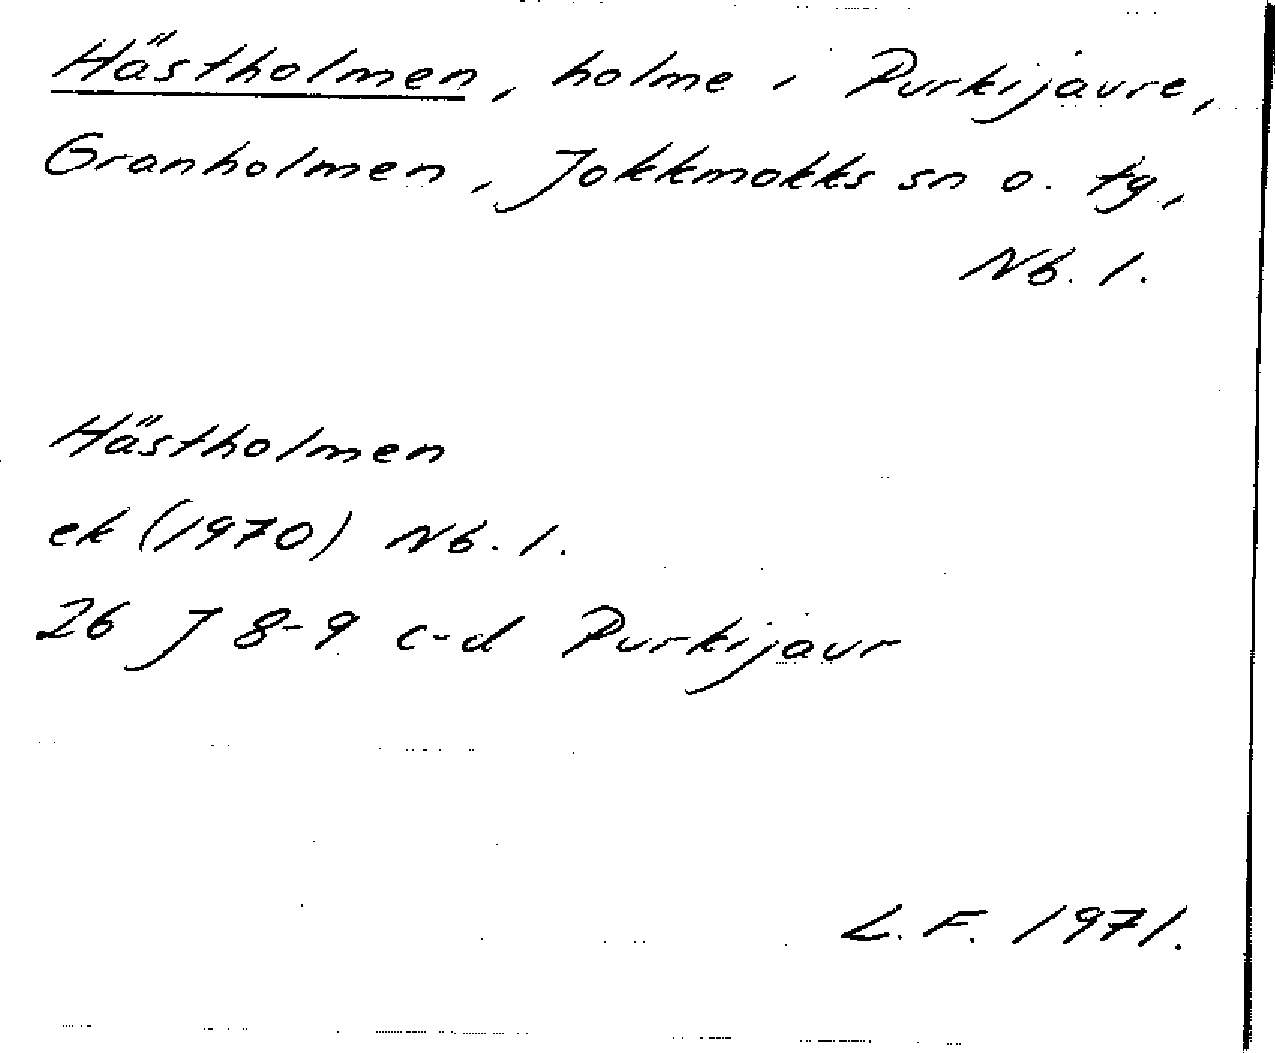 Hästholmen, holme i Purkijaure,
Granholmen, Jokkmokks sn o. tg,
Nb. l.
Hästholmen
ek (1970) Nb. l.
26 J 8-9 c-d Purkijaur
L. F. 1971.